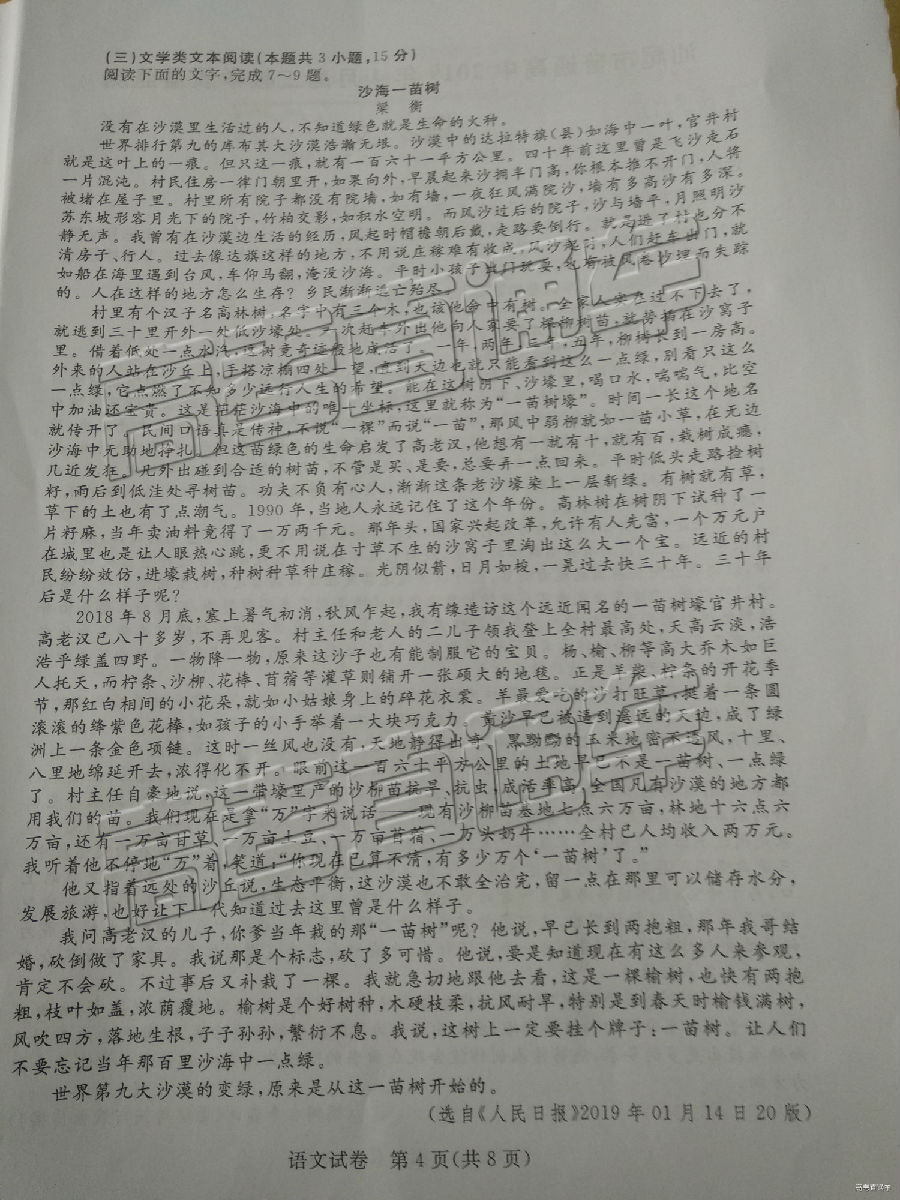 (三)文学类文本阅读(本题共3小题,15分)
阅读下面的文字,完成7~9题。
沙海一苗树
梁 衡
没有在沙漠里生活过的人,不知道绿色就是生命的火种。
世界排行第九的库布其大沙漠浩瀚无垠。沙漠中的达拉特旗(县)如海中一叶,官井村
就是这叶上的一痕。但只这一痕,就有一百六十一平方公里。四十年前这里曾是飞沙走石
一片混沌。村民住房一律门朝里开,如果向外,早晨起来沙拥半门高,你根本推不开门,人将
被堵在屋子里。村里所有院子都没有院墙,如有墙,一夜狂风满院沙,墙有多高沙有多深。
苏东坡形容月光下的院子,竹柏交影,如积水空明。而风沙过后的院子,沙与墙平,月照明沙
静无声。我曾有在沙漠边生活的经历,风起时帽檐朝后戴,走路要倒行。就是进了村也分不
清房子、行人。过去像达旗这样的地方,不用说庄稼难有收成,风沙起时,人们赶车出门,就
如船在海里遇到台风,车仰马翻,淹没沙海。平时小孩子出门玩耍,也有被风卷沙埋而失踪
的。人在这样的地方怎么生存?乡民渐渐逃亡殆尽。
村里有个汉子名高林树,名字中有三个木,也该他命中有树。全家人实在过不下去了,
就逃到三十里开外一处低沙壕处。一次赶车外出他向人家要了棵柳树苗,就势插在沙窝子
里。借着低处一点水汽,这树竟奇迹般地成活了。一年,两年,三年,五年,柳树长到一房高。
外来的人站在沙丘上,手搭凉棚四处一望,直到天边也就只能看到这么一点绿,别看只这么
一点绿,它点燃了不知多少远行人生的希望。能在这树阴下,沙壕里,喝口水,喘喘气,比空
中加油还宝贵。这是茫茫沙海中的唯一坐标,这里就称为“一苗树壕”。时间一长这个地名
就传开了。民间口语真是传神,不说“一棵”而说“一苗”,那风中弱柳就如一苗小草,在无边
沙海中无助地挣扎。但这苗绿色的生命启发了高老汉,他想有一就有十,就有百,栽树成瘾,
几近发狂。凡外出碰到合适的树苗,不管是买、是要,总要弄一点回来。平时低头走路捡树
籽,雨后到低洼处寻树苗。功夫不负有心人,渐渐这条老沙壕染上一层新绿。有树就有草,
草下的土也有了点潮气。1990年,当地人永远记住了这个年份。高林树在树阴下试种了一
片籽麻,当年卖油料竟得了一万两千元。那年头,国家兴起改革,允许有人先富,一个万元户
在城里也是让人眼热心跳,更不用说在寸草不生的沙窝子里淘出这么大一个宝。远近的村
民纷纷效仿,进壕栽树,种树种草种庄稼。光阴似箭,日月如梭,一晃过去快三十年。三十年
后是什么样子呢?
2018年8月底,塞上暑气初消,秋风乍起,我有缘造访这个远近闻名的一苗树壕官井村。
高老汉已八十多岁,不再见客。村主任和老人的二儿子领我登上全村最高处,天高云淡,浩
浩乎绿盖四野。一物降一物,原来这沙子也有能制服它的宝贝。杨、榆、柳等高大乔木如巨
人托天,而柠条、沙柳、花棒、苜蓿等灌草则铺开一张硕大的地毯。正是羊柴、柠条的开花季
节,那红白相间的小花朵,就如小姑娘身上的碎花衣裳。羊最爱吃的沙打旺草,挺着一条圆
滚滚的绛紫色花棒,如孩子的小手举着一大块巧克力。黄沙早已被逼到遥远的天边,成了绿
洲上一条金色项链。这时一丝风也没有,天地静得出奇。黑黝黝的玉米地密不透风,十里、
八里地绵延开去,浓得化不开。眼前这一百六十平方公里的土地早已不是一苗树、一点绿
了。村主任自豪地说,这一带壕里产的沙柳苗抗旱、抗虫,成活率高,全国凡有沙漠的地方都
用我们的苗。我们现在是拿“万”字来说话——现有沙柳苗基地七点六万亩,林地十六点六
万亩,还有一万亩甘草、一万亩土豆、一万亩苜蓿、一万头奶牛……全村已人均收入两万元。
我听着他不停地“万”着,笑道:“你现在已算不清,有多少万个‘一苗树’了。”
他又指着远处的沙丘说,生态平衡,这沙漠也不敢全治完,留一点在那里可以储存水分,
发展旅游,也好让下一代知道过去这里曾是什么样子。
我问高老汉的儿子,你爹当年栽的那“一苗树”呢?他说,早已长到两抱粗,那年我哥结
婚,砍倒做了家具。我说那是个标志,砍了多可惜。他说,要是知道现在有这么多人来参观,
肯定不会砍。不过事后又补栽了一棵。我就急切地跟他去看,这是一棵榆树,也快有两抱
粗,枝叶如盖,浓荫覆地。榆树是个好树种,木硬枝柔,抗风耐旱,特别是到春天时榆钱满树,
风吹四方,落地生根,子子孙孙,繁衍不息。我说,这树上一定要挂个牌子:一苗树。让人们
不要忘记当年那百里沙海中一点绿。
世界第九大沙漠的变绿,原来是从这一苗树开始的。
(选自《人民日报》2019年01月14日20版)
语文试卷 第4页(共8页)